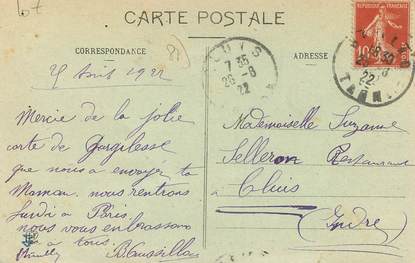 CARTE POSTALE
CORRESPONDANCE
ADRESSE
1922
Mercie de la jolie
carte de Gargilesse
que nous a envoyé ta
Maman. nous rentrons
Lundi à Paris
nous vous embrassons
à tous.
Mademoiselle Suzanne
Selleron Restaurant
Cluis
(Indre)
7 35
26 -8
22
REPUBLIQUE FRANÇAISE
10
TARN
22